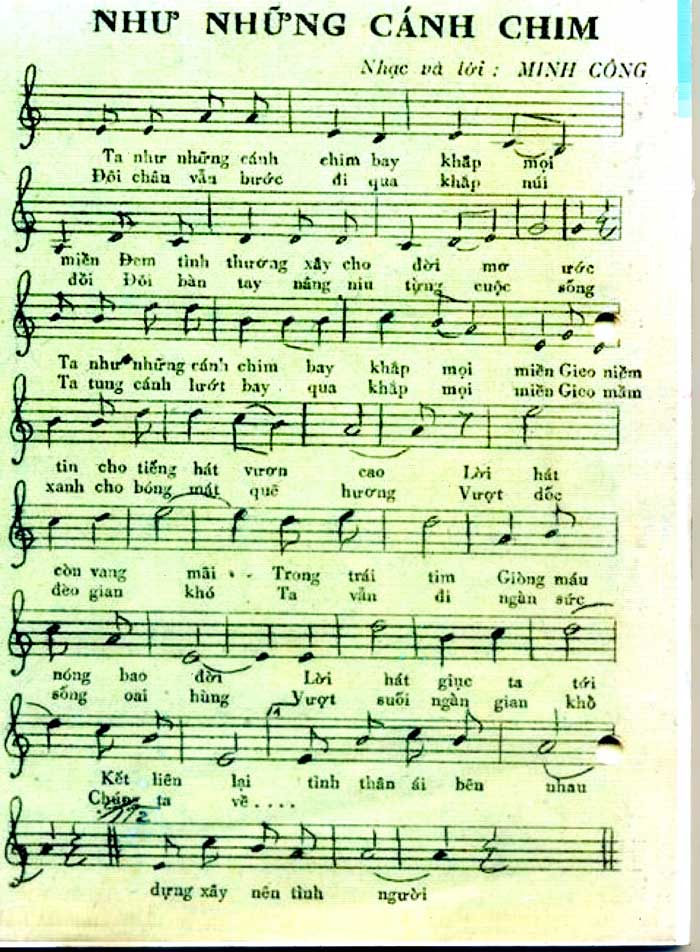 NHƯ NHỮNG CÁNH CHIM
Nhạc và lời : MINH CÔNG
Ta như những cánh chim bay khắp mọi
Đôi chân vẫn bước đi qua khắp núi
miền Đem tình thương xây cho đời mơ ước
đồi Đôi bàn tay nâng niu từng cuộc sống
Ta như những cánh chim bay khắp mọi miền Gieo niềm
Ta tung cánh lướt bay qua khắp mọi miền Gieo mầm
tin cho tiếng hát vươn cao Lời hát
xanh cho bóng mát quê hương Vượt dốc
còn vang mãi . . Trong trái tim Giòng máu
đèo gian khó Ta vẫn đi ngàn sức
nóng bao đời Lời hát giục ta tới
sống oai hùng Vượt suối ngàn gian khổ
1
Kết liên lại tình thân ái bên nhau
Chúng ta về . . . .
2
dựng xây nên tình người